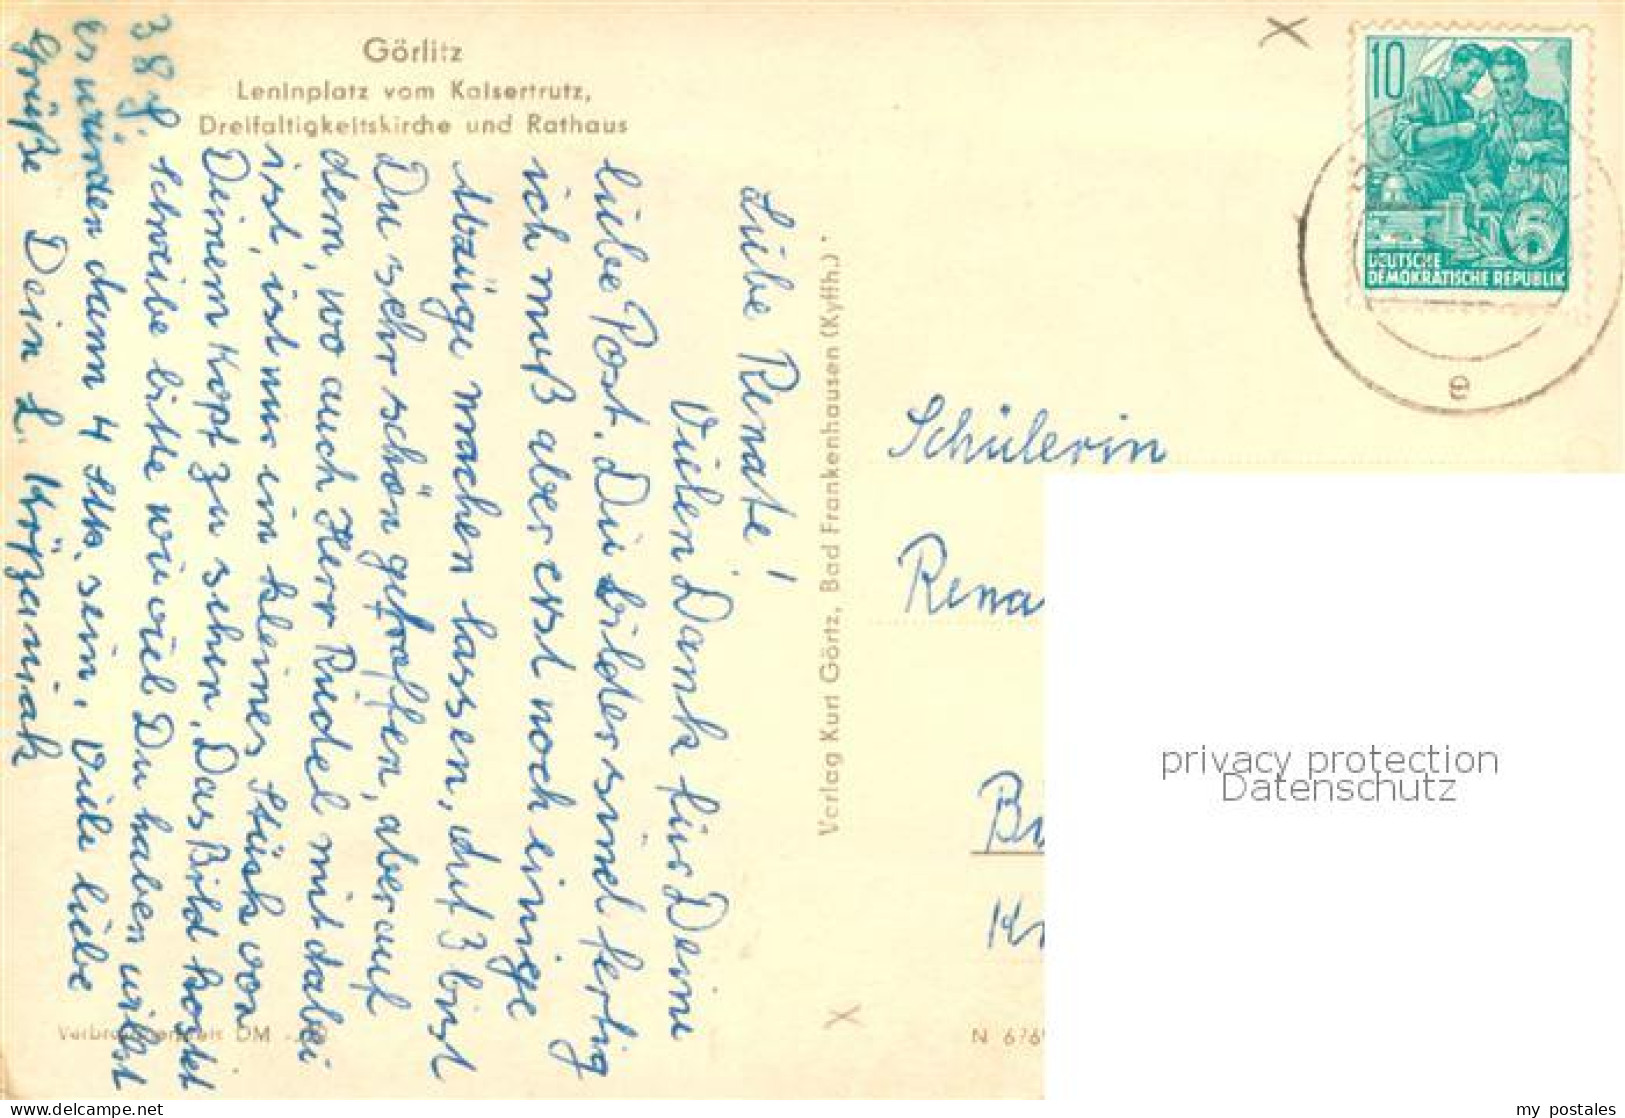 Görlitz
Leninplatz vom Kaisertrutz,
Dreifaltigkeitskirche und Rathaus
Liebe Renate!
Vielen Dank für Deine
liebe Post. Die Bilder sind fertig
ich muß aber erst noch einige
Abzüge machen lassen, auf 3 bist
Du sehr schön getroffen, aber auf
dem, wo auch Herr Riedel mit dabei
ist, ist nur ein kleines Stück von
Deinem Kopf zu sehen. Das Bild kostet
38 Pf. Schreibe bitte wieviel Du haben willst
es würden dann 4 Stk. sein. Viele liebe
Grüße Dein L.
Verlag Kurt Görtz, Bad Frankenhausen (Kyffh.)
DM
N 676
10
5
DEUTSCHE
DEMOKRATISCHE REPUBLIK
e
Schülerin
Rena
privacy protection
Datenschutz
my postales